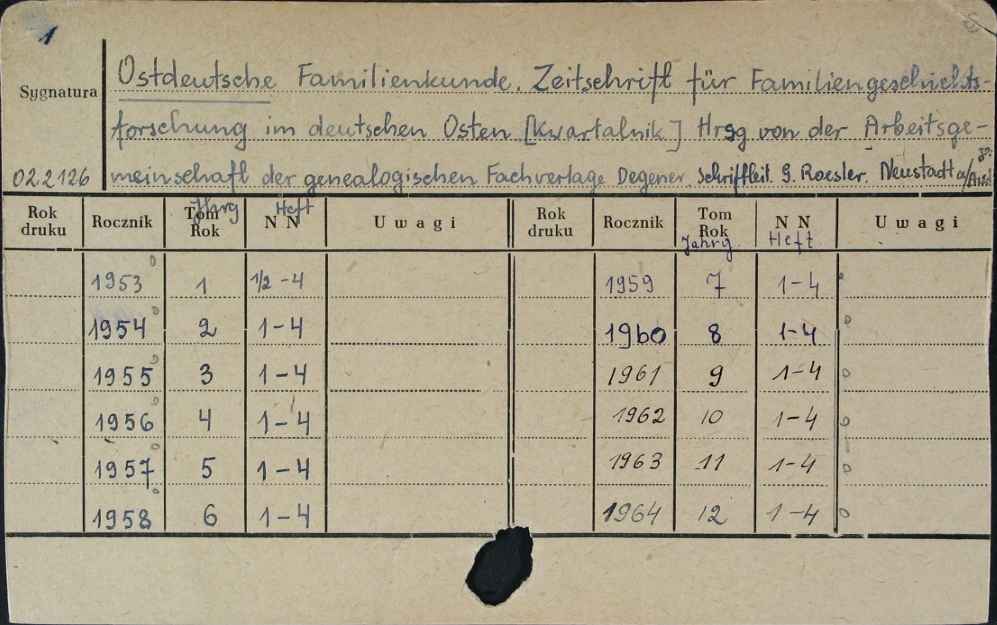 1
Sygnatura
02.2126
Ostdeutsche Familienkunde. Zeitschrift für Familiengeschichts-
forschung im deutschen Osten [kwartalnik] Hrsg von der Arbeitsge-
meinschaft der genealogischen Fachverlage Degener. Schriftleit. G. Roesler. Neustadt a/Aisch
Rok druku Rocznik Tom Rok Jhrg NN Heft Uwagi Rok druku Rocznik Tom Rok Jahrg. NN Heft Uwagi
1953 1 1/2-4 1959 7 1-4
1954 2 1-4 1960 8 1-4
1955 3 1-4 1961 9 1-4
1956 4 1-4 1962 10 1-4
1957 5 1-4 1963 11 1-4
1958 6 1-4 1964 12 1-4